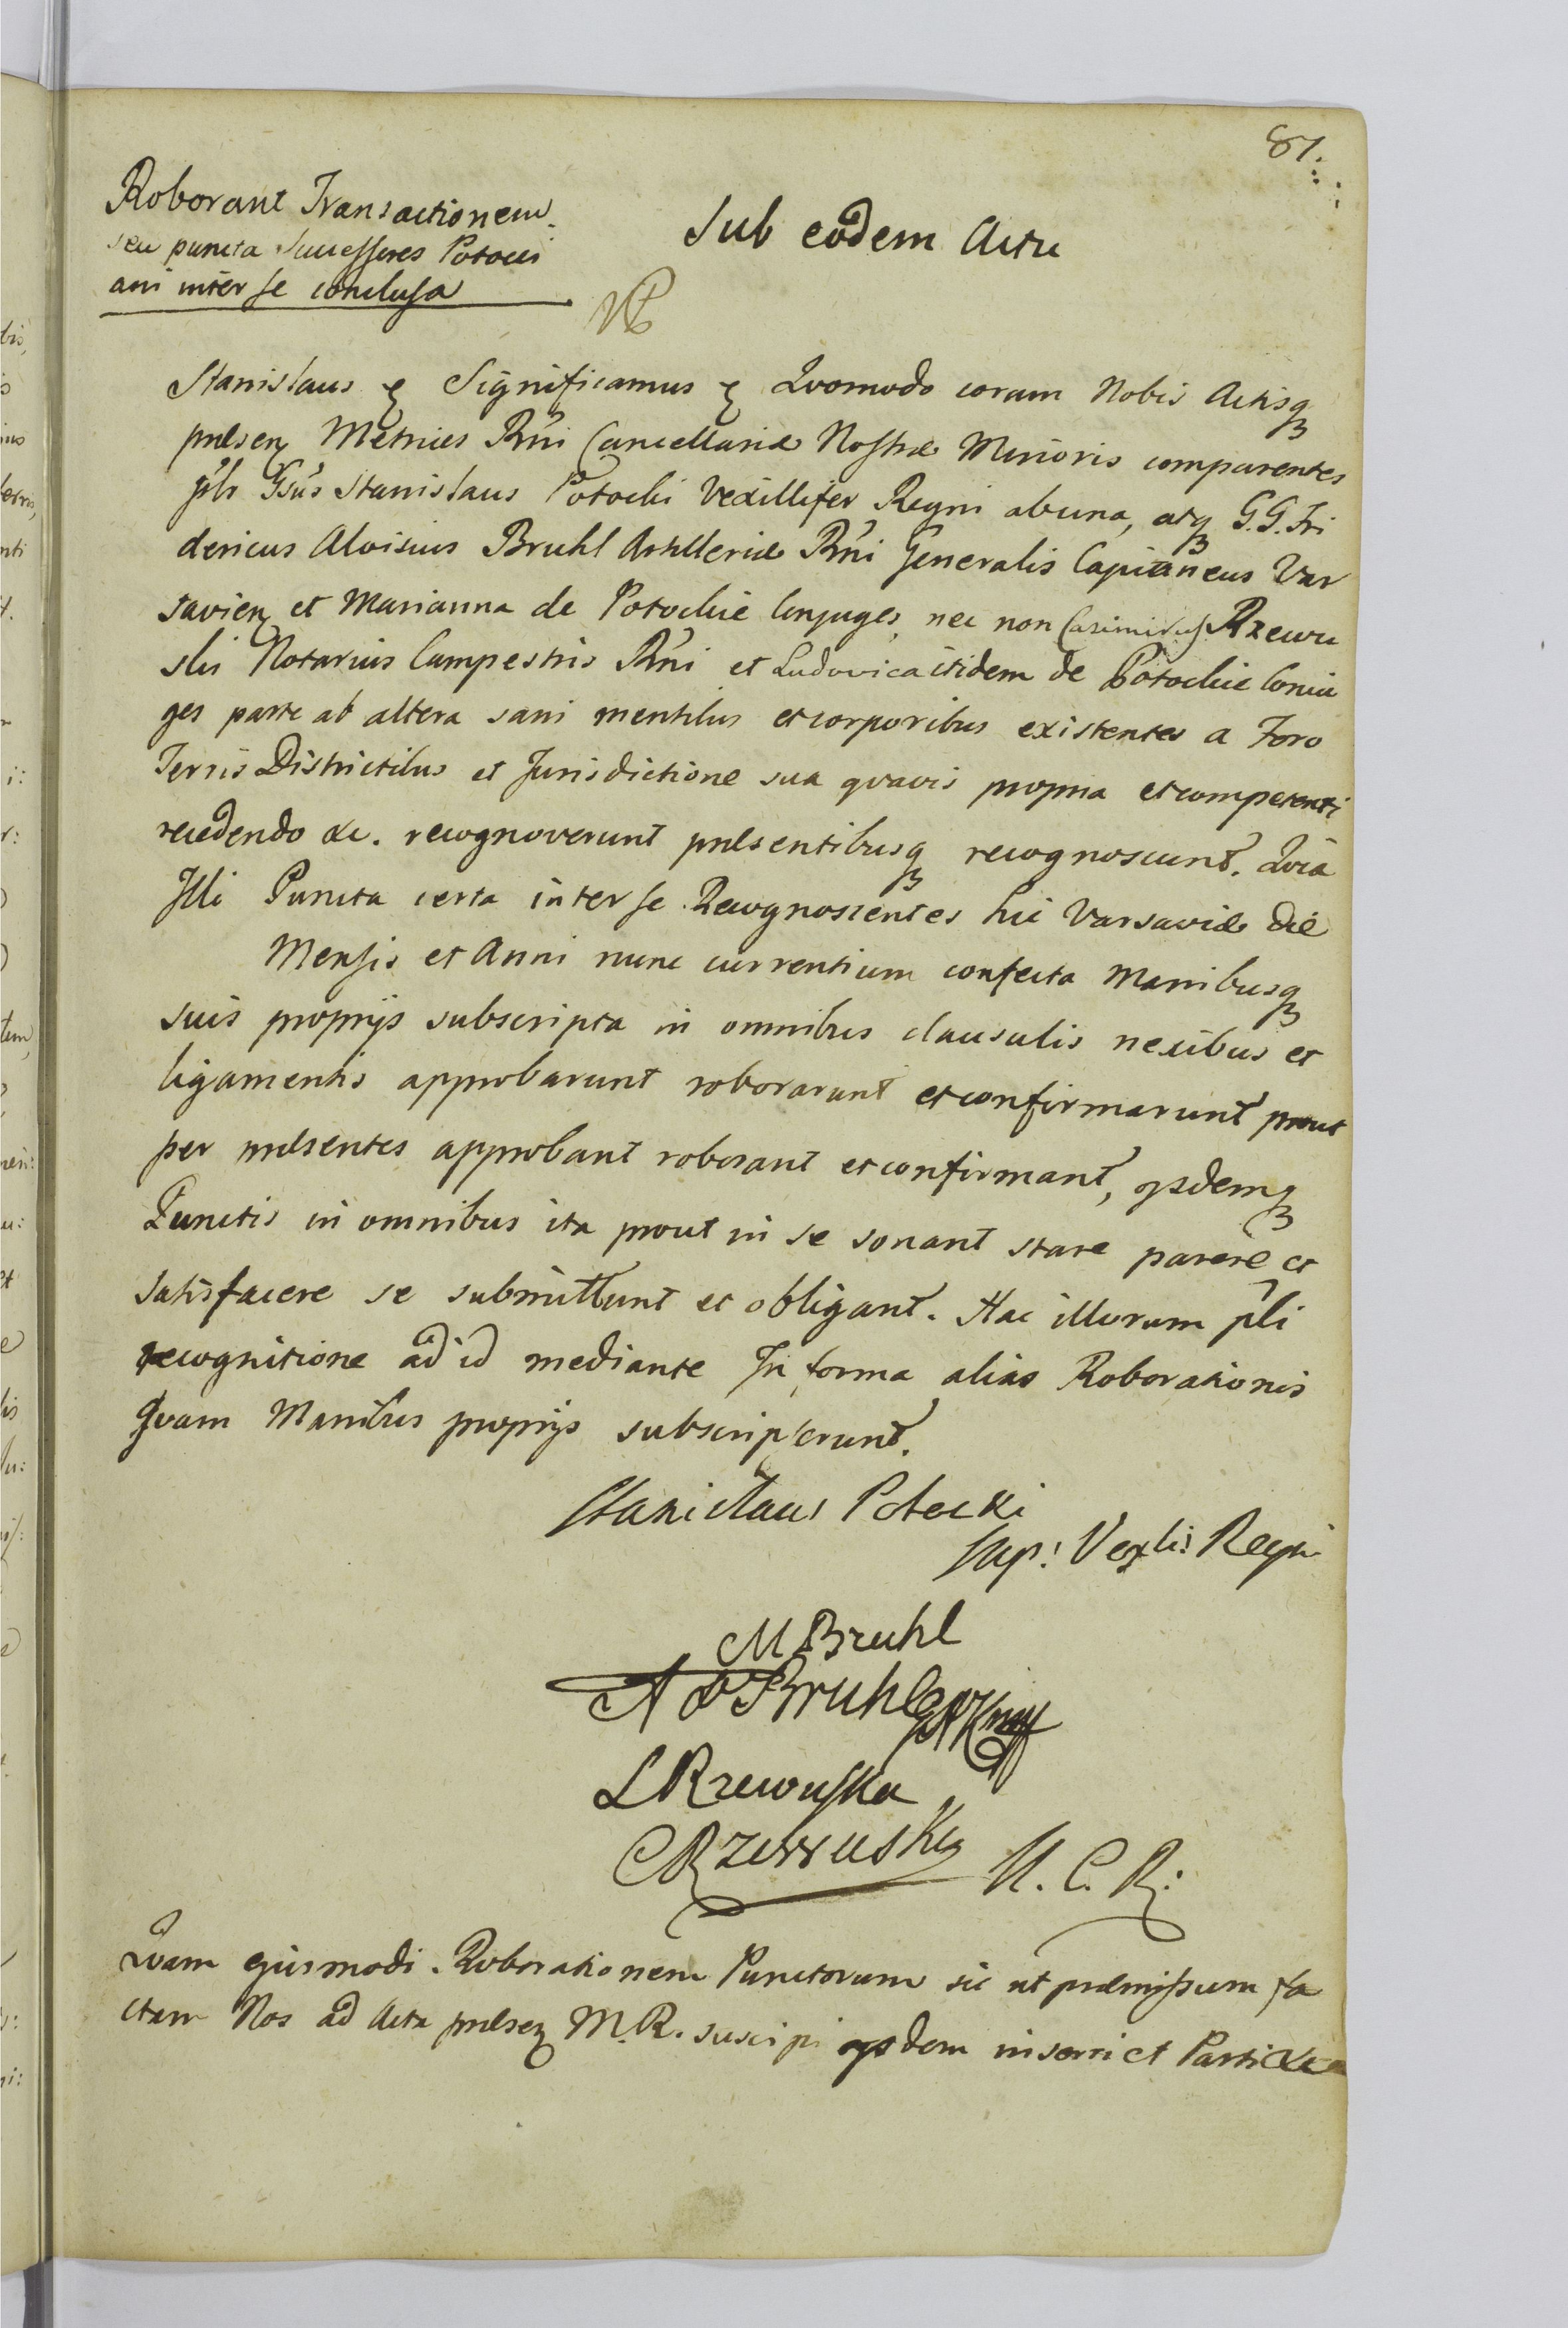 87.
Roborant Transactionem
seu puncta Successores Potocci
ani inter se conclusa
Sub eodem Actu
Stanislaus Significamus Quomodo coram Nobis Actisq
pnlsen Metrices Rni Cancellariæ Nostræ Minoris comparentes
plr Gsus Stanislaus Potocki Vexillifer Regni ab una, atq G. G. Fri
dericus Aloisius Bruhl Artilleriæ Rni Generalis Capitaneus Var
savien et Marianna de Potockie Conjuges, nec non Casimirus Rzewu
ski Notarius Campestris Rni et Ludovica itidem de Potockie Coniu
ges parte ab altera sani mentibus et corporibus existentes a Foro
Terris Districtibus et Jurisdictione sua quavis propria et competenti
recedendo &c. recognoverunt pnlsentibusq recognoscunt. Quia
Illi Puncta certa inter se Recognoscentes hic Varsaviæ Die
Mensis et Anni nunc currentium confecta Manibusq
suis proprijs subscripta in omnibus clausulis nexibus et
ligamentis approbarunt roborarunt et confirmarunt prout
per pnlsentes approbant roborant et confirmant, ysdemq
Punctis in omnibus ita prout in se sonant stare parere et
satisfacere se submittunt et obligant. Hac illorum pli
recognitione ad id mediante In forma alias Roborationis
Quam Manibus proprijs subscripserunt.
Stanislaus Potocki
Sup: Vexli: Regni
M Bruhl
A F Bruhl
L Rzewuska
C Rzewuski N. C. R:
Quam ejusmodi Roborationem Punctorum sic ut præmissum fa
ctam Nos ad Acta pnlsen M. R. suscipi ysdem inserri et Parti &c